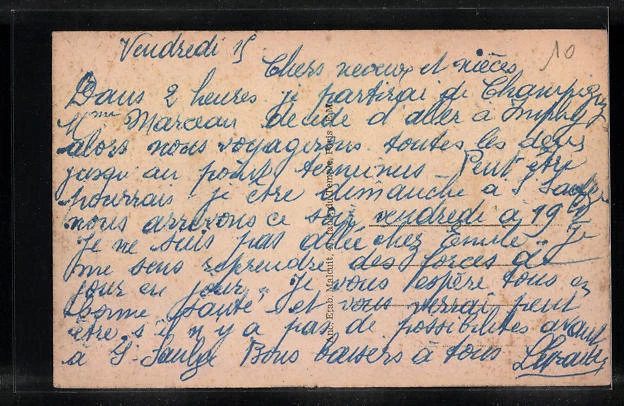 Vendredi 15
10
Chers neveux et nièces
Dans 2 heures je partirai de Champigny
Mme Marceau décide d'aller à Imphy
alors nous voyagerons toutes les deux
jusqu au point terminus. Peut être
pourrais je être dimanche à S. Saulge
nous arriverons ce soir vendredi à 19 h
Je ne suis pas allée chez Émile. Je
me sens reprendre des forces de
jour en jour. Je vous espère tous en
bonne santé et vous verrai peut
être, s'il n y a pas de possibilités avant
à S. Saulge Bons baisers à tous
Anc. Etab. Malcuit, Paris